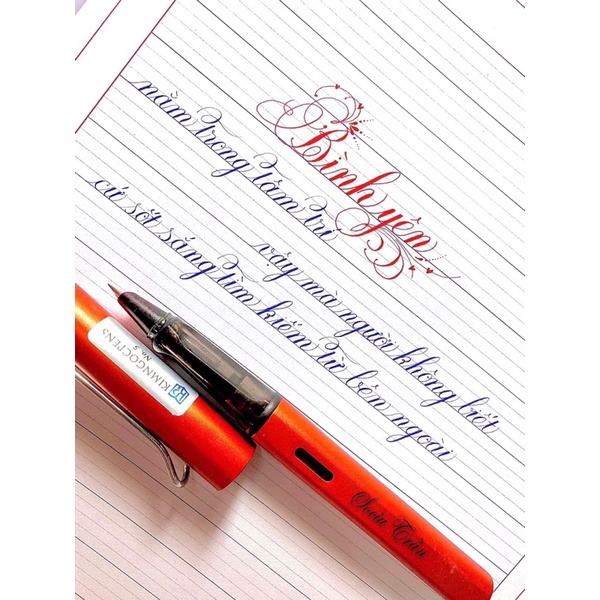 Bình yên
nằm trong tâm trí
vậy mà người không biết
cứ sốt sắng tìm kiếm từ bên ngoài
KIMNGOCPEN>
No. 5
Trần